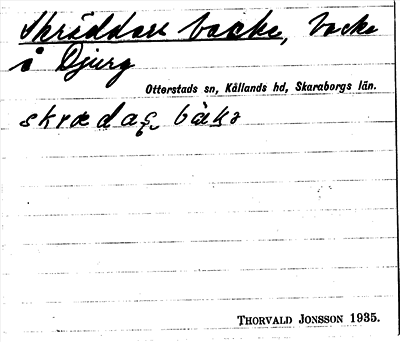 Skräddare backe, backe
i Djurg
Otterstads sn, Kållands hd, Skaraborgs län.
THORVALD JONSSON 1935.